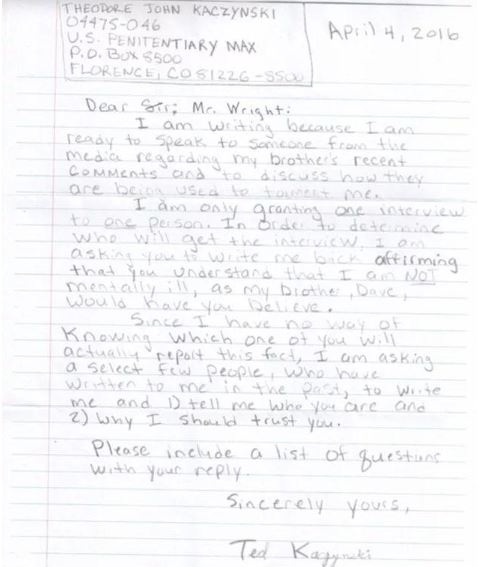 THEODORE JOHN KACZYNSKI
04475-046
U.S. PENITENTIARY MAX
P.O. BOX 8500
FLORENCE, CO 81226-8500
April 4, 2016
Dear Sir; Mr. Wright:
I am writing because I am
ready to speak to someone from the
media regarding my brother's recent
comments and to discuss how they
are being used to torment me.
I am only granting one interview
to one person. In order to determine
who will get the interview, I am
asking you to write me back affirming
that you understand that I am NOT
mentally ill, as my brother, Dave,
would have you believe.
Since I have no way of
knowing which one of you will
actually report this fact, I am asking
a select few people, who have
written to me in the past, to write
me and 1) tell me who you are and
2) why I should trust you.
Please include a list of questions
with your reply.
Sincerely yours,
Ted Kaczynski